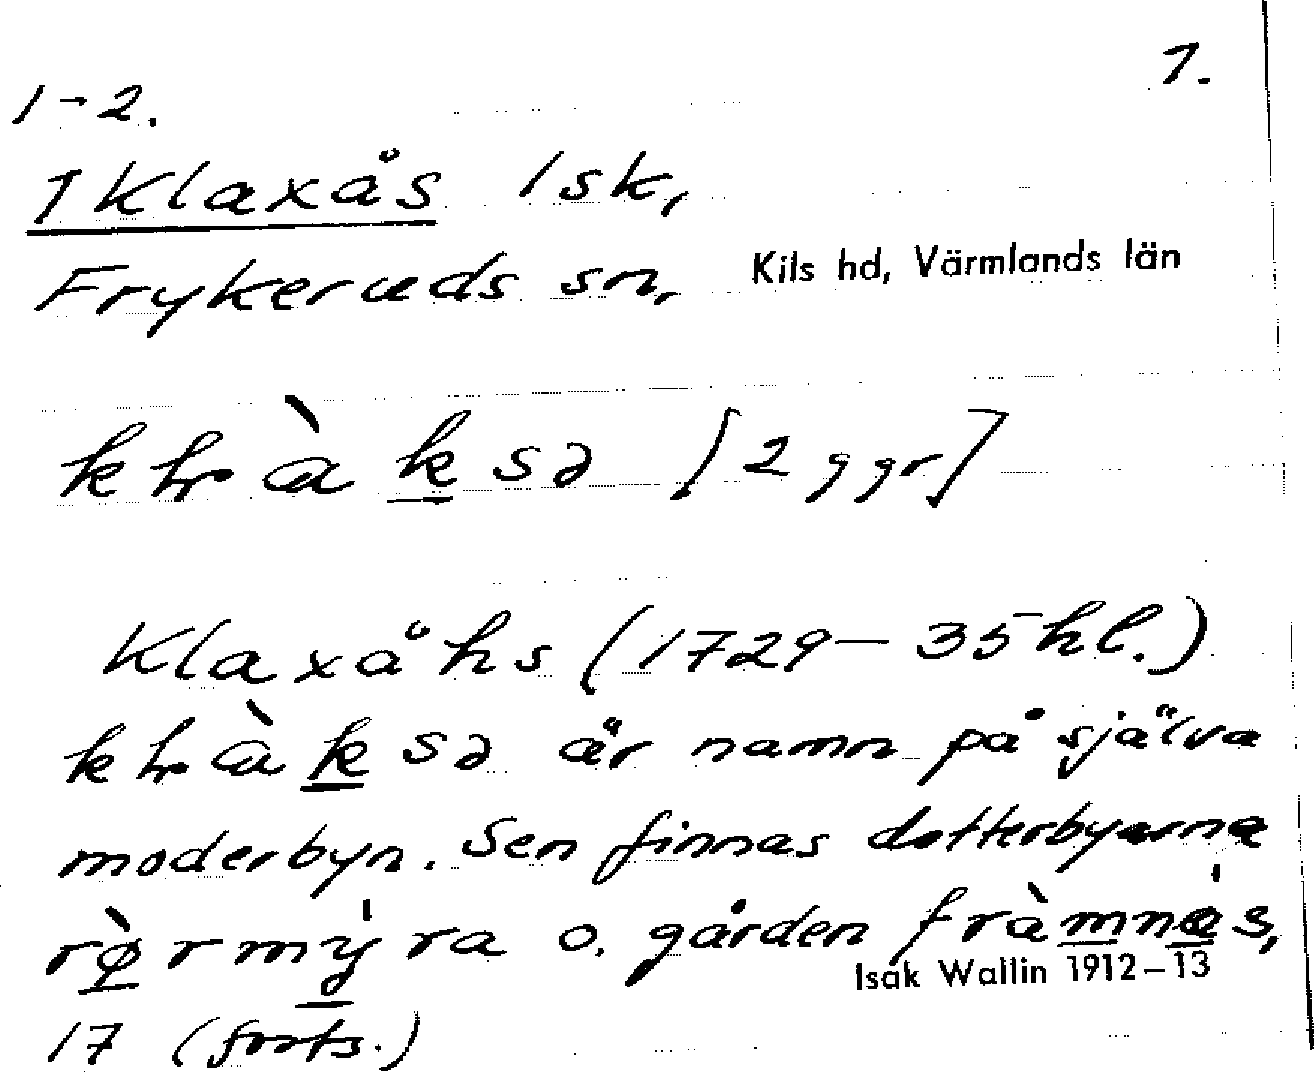 1.
1-2.
1 Klaxås 1 sk,
Frykeruds sn, Kils hd, Värmlands län
[2 ggr]
Klaxåhs (1729-35 hl.)
är namn på själva
moderbyn. Sen finnas dotterbyarna
o. gården
Isak Wallin 1912-13
17 (forts.)